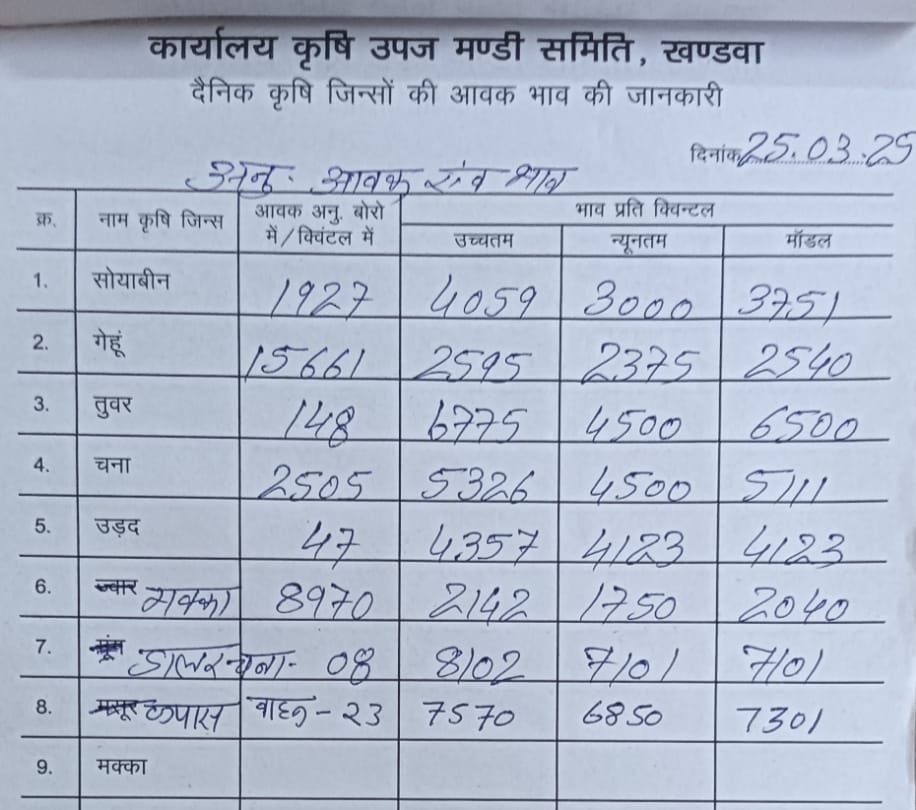 कार्यालय कृषि उपज मण्डी समिति, खण्डवा
दैनिक कृषि जिन्सों की आवक भाव की जानकारी
दिनांक 25.03.25
अनु. आवक एंव भाव
क्र. नाम कृषि जिन्स आवक अनु. बोरो में/क्विंटल में भाव प्रति क्विन्टल
उच्चतम न्यूनतम मॉडल
1. सोयाबीन 1927 4059 3000 3751
2. गेहूं 15661 2595 2375 2540
3. तुवर 148 6775 4500 6500
4. चना 2505 5326 4500 5111
5. उड़द 47 4357 4123 4123
6. ज्वार मक्का 8970 2142 1750 2040
7. मूंग डालर चना- 08 8102 7101 7101
8. मसूर कपास वाहन - 23 7570 6850 7301
9. मक्का